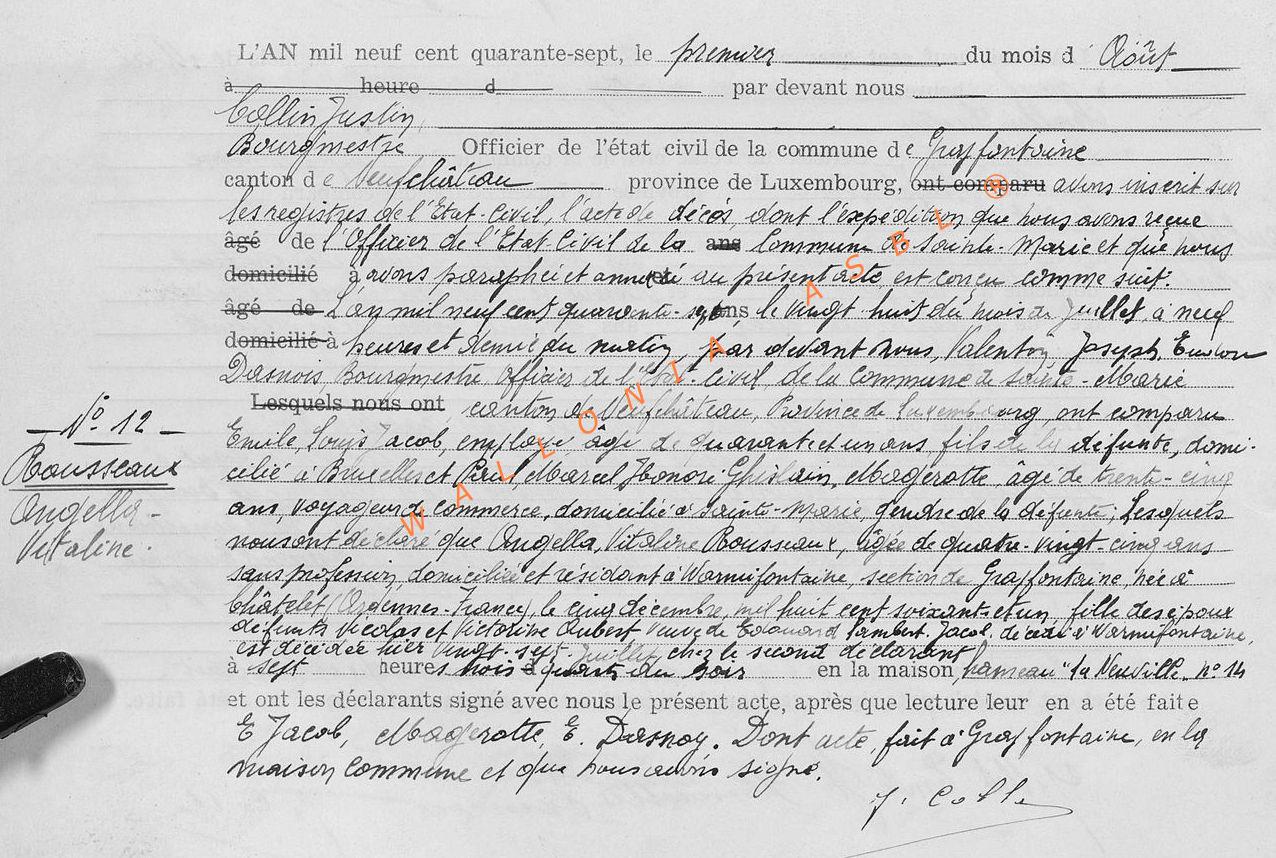 L'AN mil neuf cent quarante-sept, le premier du mois d Août
à heure d par devant nous
Collin Justin
Bourgmestre Officier de l'état civil de la commune de Grapfontaine
canton de Neufchâteau province de Luxembourg, ont comparu avons inscrit sur
les registres de l'Etat-Civil, l'acte de décès, dont l'expédition que nous avons reçue
âgé de l'Officier de l'Etat Civil de la ans Commune de Sainte-Marie et que nous
domicilié à avons paraphé et annexé au présent acte est conçu comme suit:
âgé de L'an mil neuf cent quarante-sept ans, le vingt huit du mois de Juillet, à neuf
domicilié à heures et demie du matin, par devant nous, Valentin Joseph,
Dasnois Bourgmestre Officier de l'Etat-Civil de la Commune de Sainte-Marie
Lesquels nous ont canton de Neufchâteau, Province de Luxembourg, ont comparu
Emile, Louis Jacob, employé, âgé de quarante et un ans, fils de la défunte, domi-
cilié à Bruxelles et Paul Marcel Honoré Ghislain, Magerotte, âgé de trente-cinq
ans, voyageur de commerce, domicilié à Sainte-Marie, gendre de la défunte; Lesquels
nous ont déclaré que Angella, Vitaline Rousseaux, âgée de quatre-vingt-cinq ans
sans profession, domiciliée et résidant à Warmifontaine, section de Grapfontaine, née à
Châtelet (Ardennes-France), le cinq décembre, mil huit cent soixante et un, fille des époux
défunts Nicolas et Victorine Aubert veuve de Edouard Lambert Jacob, décédé à Warmifontaine,
est décédée hier vingt-sept Juillet chez le second déclarant
à sept heures trois quarts du soir en la maison hameau "la Neuville" n° 14
et ont les déclarants signé avec nous le présent acte, après que lecture leur en a été faite
E Jacob, Magerotte, E. Dasnoy. Dont acte, fait à Grapfontaine, en la
maison commune et que nous avons signé.
J. Collin
N° 12
Rousseaux
Angella-
Vitaline.
WALLONIA ASBL ®